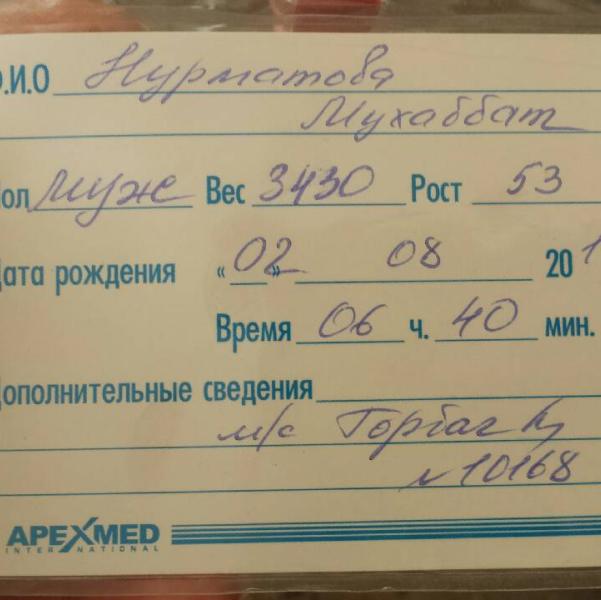 Ф.И.О Нурматова
Мухаббат
Пол муж Вес 3430 Рост 53
Дата рождения «02» 08 201
Время 06 ч. 40 мин.
Дополнительные сведения
м/с
№10168
APEXMED
INTERNATIONAL